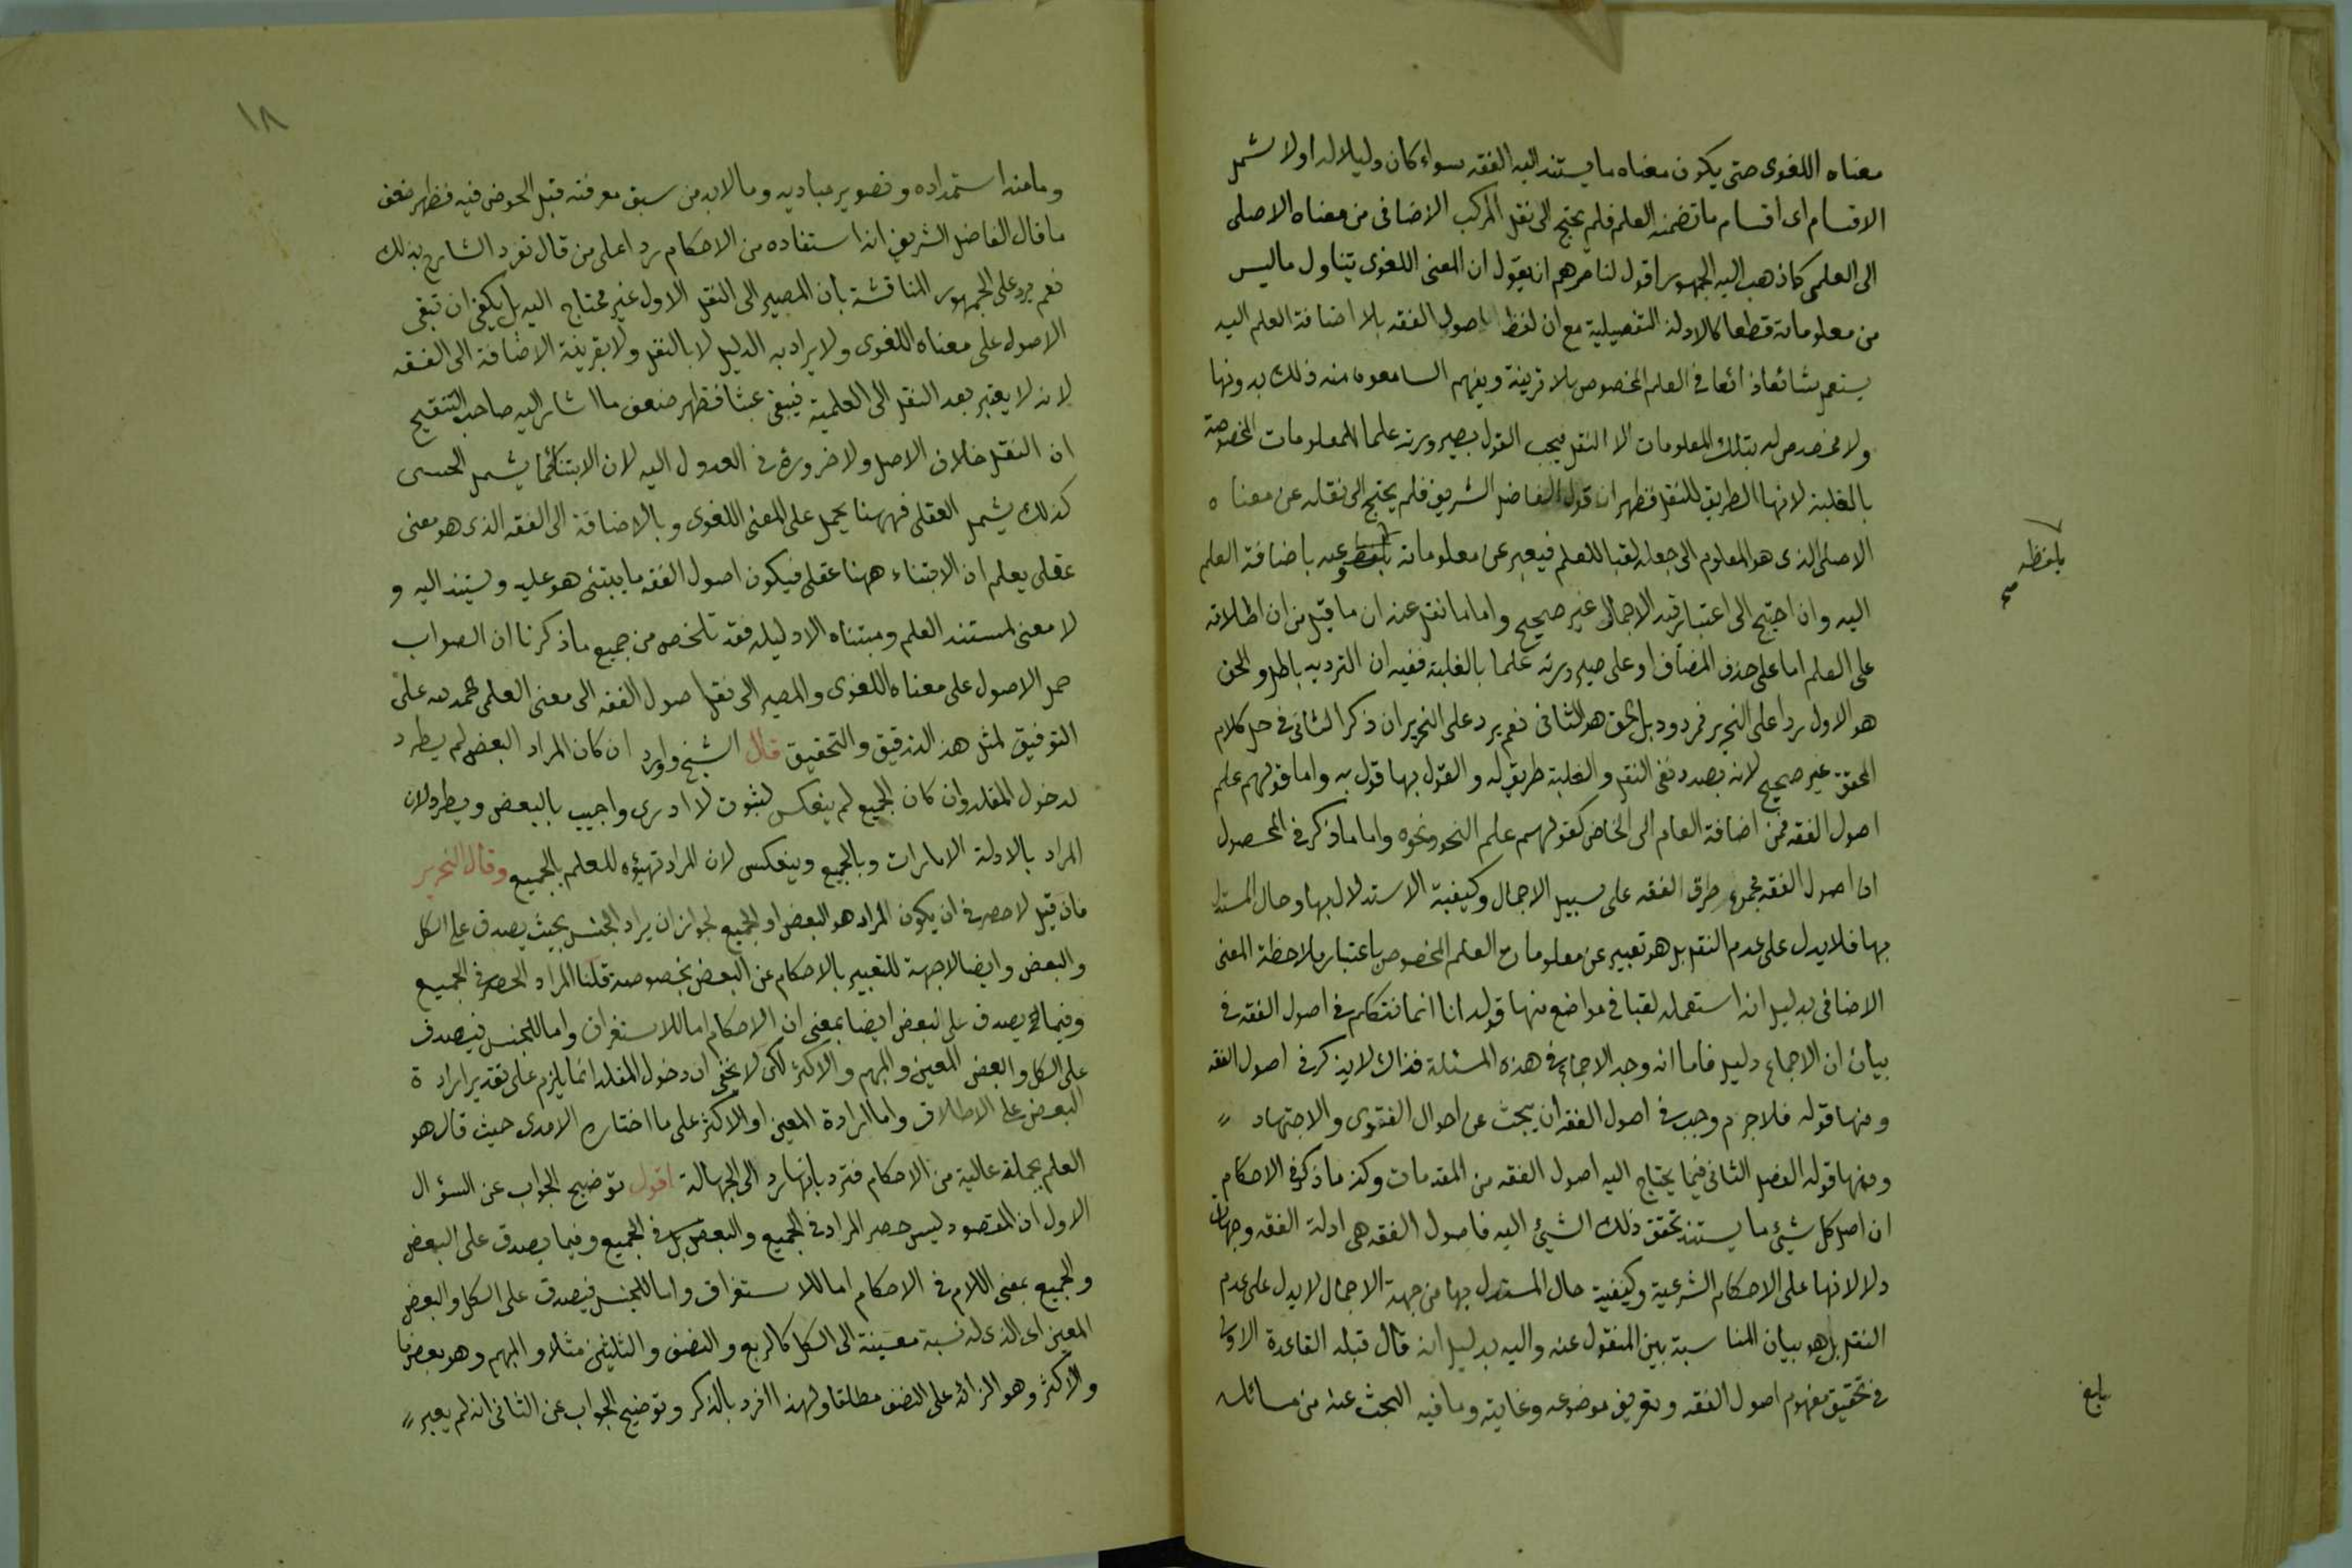 معناه اللغوى حتى يكون معناه ما يستند اليه الفقه سواء كان دليلا له اولا شمل
الاقسام اى اقسام ما تضمنه العلم فلم يحتج الى نقل المركب الاضافى من معناه الاصلى
الى العلمى كما ذهب اليه الجمهور اقول لناصرهم ان يقول ان المعنى اللغوى يتناول ماليس
من معلوماته قطعا كالادلة التفصيلية مع ان لفظ اصول الفقه بلا اضافة العلم اليه
يستعمل شائعا ذائعا فى العلم المخصوص بلا قرينة ويفهم السامعون منه ذلك بدونها
ولا مخصص له بتلك المعلومات الا النقل فيجب القول بصيرورته علما للمعلومات المخصوصة
بالغلبة لانها الطريق للنقل فظهر ان قول الفاضل الشريف فلم يحتج الى نقله عن معناه
الاصلى الذى هو المعلوم الى جعله لقبا للعلم فيعبر عن معلوماته بلفظه وعنه باضافة العلم
اليه وان احتيج الى اعتبار قيد الاجمال غير صحيح واما ما نقل عنه ان ما قيل من ان اطلاقه
على العلم اما على حذف المضاف او على صيرورته علما بالغلبة ففيه ان الترديد باطل والحق
هو الاول ردا على النحرير فمردود بل الحق هو الثانى نعم يرد على النحرير ان ذكر الثانى فى حل كلام
المحقق غير صحيح لانه بصدد نفى النقل والغلبة طريق له والقول بها قول به واما قولهم علم
اصول الفقه فمن اضافة العام الى الخاص كقولهم علم النحو ونحوه واما ما ذكر فى المحصول
ان اصول الفقه مجموع طرق الفقه على سبيل الاجمال وكيفية الاستدلال بها وحال المستدل
بها فلا يدل على عدم النقل بل هو تعبير عن معلومات العلم المخصوص باعتبار ملاحظة المعنى
الاضافى بدليل انه استعمله لقبا فى مواضع منها قوله انا انما نتكلم فى اصول الفقه فى
بيان ان الاجماع دليل فاما انه وجد الاجماع فى هذه المسئلة فذاك لا يذكر فى اصول الفقه
ومنها قوله فلا جرم وجب فى اصول الفقه ان يبحث عن احوال الفتوى والاجتهاد
ومنها قوله الفصل الثانى فيما يحتاج اليه اصول الفقه من المقدمات وكذا ما ذكر فى الاحكام
ان اصل كل شيئ ما يستند تحقق ذلك الشيئ اليه فاصول الفقه هى ادلة الفقه وجهات
دلالاتها على الاحكام الشرعية وكيفية حال المستدل بها من جهة الاجمال لا يدل على عدم
النقل بل هو بيان المناسبة بين المنقول عنه واليه بدليل انه قال قبله القاعدة الاولى
فى تحقيق مفهوم اصول الفقه وتعريف موضوعه وغايته وما فيه البحث عنه من مسائله
بلفظه
صح
بلغ
١٨
وما منه استمداده وتصوير مباديه وما لابد من سبق معرفته قبل الخوض فيه فظهر ضعف
ما قال الفاضل الشريف انه استفاده من الاحكام ردا على من قال تفرد الشارح بذلك
نعم يرد على الجمهور المناقشة بان المصير الى النقل الاول غير محتاج اليه بل يكفى ان تبقى
الاصول على معناه اللغوى ولا يراد به الدليل لا بالنقل ولا بقرينة الاضافة الى الفقه
لانه لا يعتبر بعد النقل الى العلمية فيبقى عبثا فظهر ضعف ما اشار اليه صاحب التنقيح
ان النقل خلاف الاصل ولا ضرورة فى العدول اليه لان الابتناء كما يشمل الحسى
كذلك يشمل العقلى فههنا يحمل على المعنى اللغوى وبالاضافة الى الفقه الذى هو معنى
عقلى يعلم ان الابتناء ههنا عقلى فيكون اصول الفقه ما يبتنى هو عليه ويستند اليه و
لا معنى لمستند العلم ومبتناه الا دليله فقد تلخص من جميع ما ذكرنا ان الصواب
حمل الاصول على معناه اللغوى والمصير الى نقل اصول الفقه الى معنى العلمى الحمد لله على
التوفيق لمثل هذا التدقيق والتحقيق قال الشيخ واورد ان كان المراد البعض لم يطرد
لدخول المقلد وان كان الجميع لم ينعكس لثبوت لا ادرى واجيب بالبعض ويطرد لان
المراد بالادلة الامارات وبالجميع وينعكس لان المراد تهيؤه للعلم بالجميع وقال النحرير
فان قيل لا حصر فى ان يكون المراد هو البعض او الجميع لجواز ان يراد الجنس بحيث يصدق على الكل
والبعض وايضا لاجهة للتعبير بالاحكام عن البعض بخصوصه قلنا المراد الحصر فى الجميع
وفيما يصدق على البعض ايضا بمعنى ان الاحكام اما للاستغراق واما للجنس فيصدق
على الكل والبعض المعين والمبهم والاكثر لكن لا يخفى ان دخول المقلد انما يلزم على تقدير ارادة
البعض على الاطلاق واما ارادة المعين او الاكثر على ما اختاره الامدى حيث قال هو
العلم بجملة غالبة من الاحكام فترد بانها رد الى الجهالة اقول توضيح الجواب عن السؤال
الاول ان المقصود ليس حصر المراد فى الجميع والبعض بل فى الجميع وفيما يصدق على البعض
والجميع بمعنى اللام فى الاحكام اما للاستغراق واما للجنس فيصدق على الكل والبعض
المعين اى الذى له نسبة معينة الى الكل كالربع والنصف والثلثين مثلا والمبهم وهو بعض ما
والاكثر وهو الزائد على النصف مطلقا ولهذا افرد بالذكر وتوضيح الجواب عن الثانى انه لم يعبر